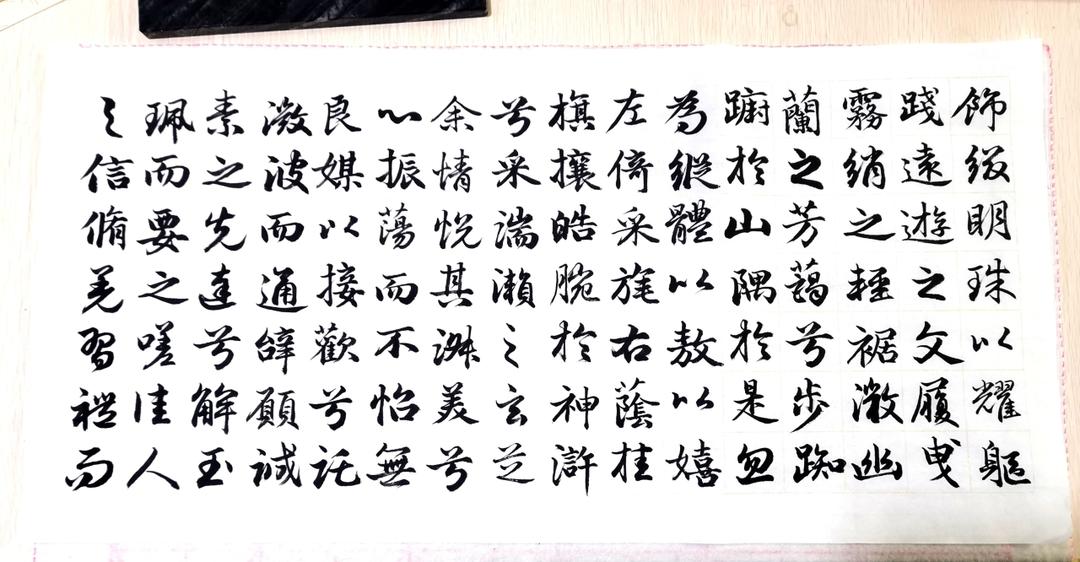 飾綴明珠以耀軀
踐遠遊之文履曳
霧綃之輕裾微幽
蘭之芳藹兮步踟
蹰於山隅於是忽
焉縱體以敖以嬉
左倚采旄右蔭桂
旗攘皓腕於神滸
兮采湍瀨之玄芝
余情悅其淑美兮
心振蕩而不怡無
良媒以接歡兮託
微波而通辭願誠
素之先達兮解玉
珮而要之嗟佳人
之信脩羌習禮而